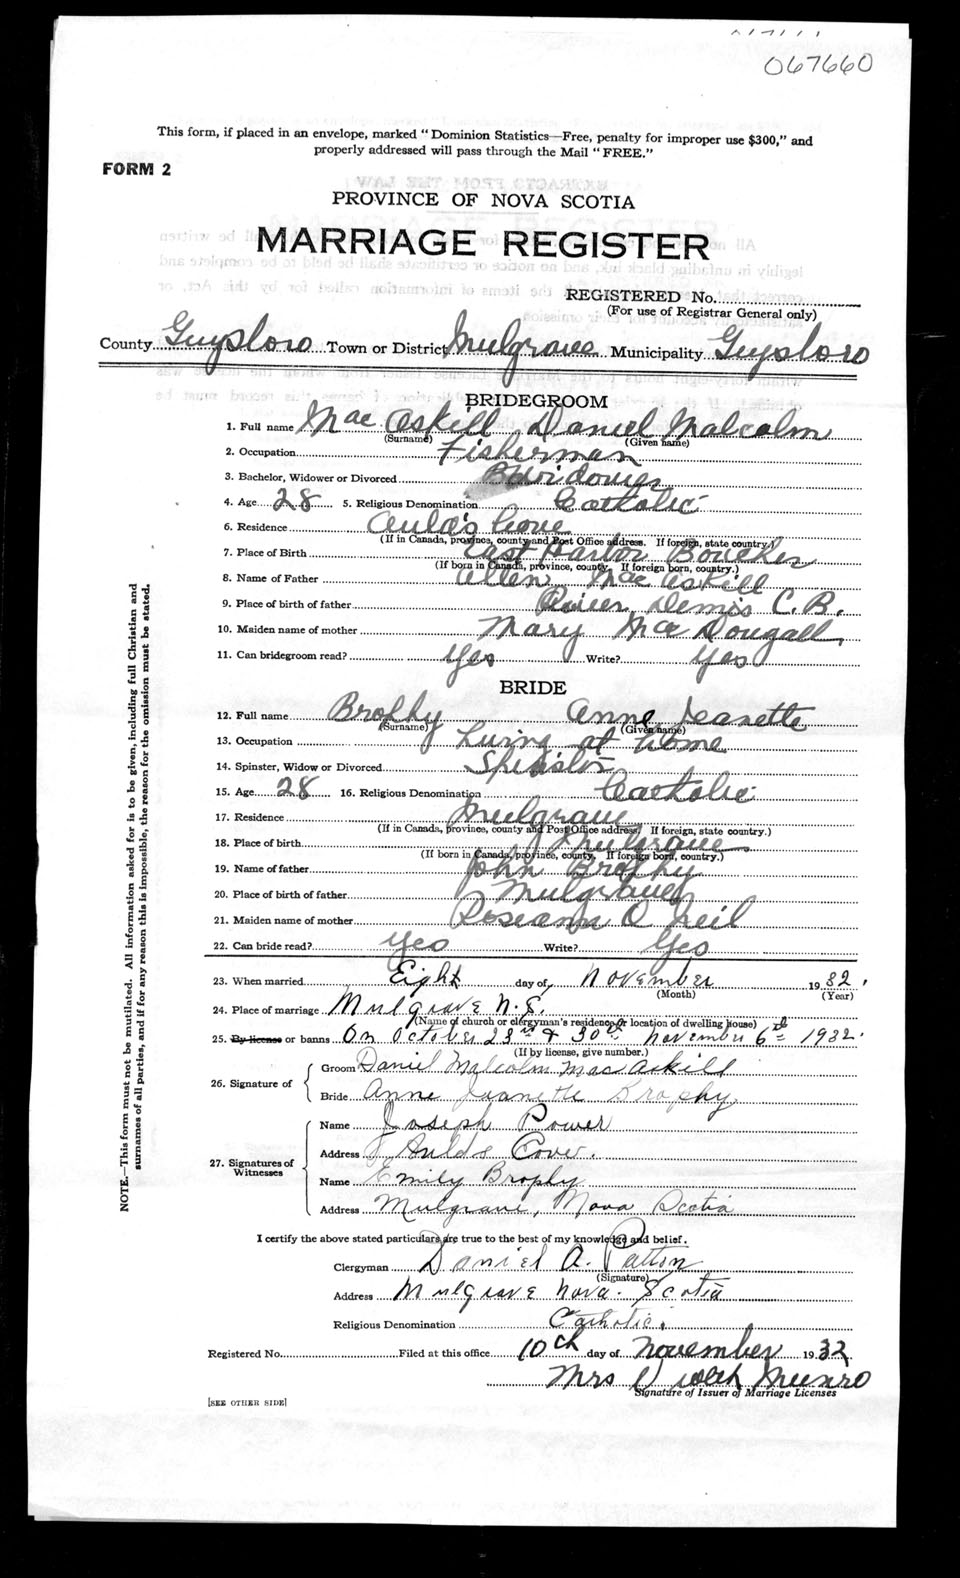 067660
This form, if placed in an envelope, marked "Dominion Statistics—Free, penalty for improper use $300," and
properly addressed will pass through the Mail "FREE."
FORM 2
PROVINCE OF NOVA SCOTIA
MARRIAGE REGISTER
REGISTERED No.
(For use of Registrar General only)
County Guysboro Town or District Mulgrave Municipality Guysboro
BRIDEGROOM
1. Full name Mac Askill Daniel Malcolm
(Surname) (Given name)
2. Occupation Fisherman
3. Bachelor, Widower or Divorced Widower
4. Age 28 5. Religious Denomination Catholic
6. Residence Auld's Cove
(If in Canada, province, county and Post Office address. If foreign, state country.)
7. Place of Birth East Harbor Boucher
(If born in Canada, province, county. If foreign born, country.)
8. Name of Father Allen Mac Askill
9. Place of birth of father Denis C.B.
10. Maiden name of mother Mary Mac Dougall
11. Can bridegroom read? Yes Write? Yes
BRIDE
12. Full name Brophy Anne Jeanette
(Surname) (Given name)
13. Occupation Living at Home
14. Spinster, Widow or Divorced Spinster
15. Age 28 16. Religious Denomination Catholic
17. Residence Mulgrave
(If in Canada, province, county and Post Office address. If foreign, state country.)
18. Place of birth Mulgrave
(If born in Canada, province, county. If foreign born, country.)
19. Name of father John Brophy
20. Place of birth of father Mulgrave
21. Maiden name of mother Roseanna O Neil
22. Can bride read? Yes Write? Yes
23. When married Eight day of November 1932.
(Month) (Year)
24. Place of marriage Mulgrave N.S.
(Name of church or clergyman's residence or location of dwelling house)
25. By license or banns On October 23rd & 30th November 6th 1932.
(If by license, give number.)
26. Signature of
Groom Daniel Malcolm MacAskill
Bride Anne Jeanette Brophy
27. Signatures of Witnesses
Name Joseph Power
Address Aulds Cove.
Name Emily Brophy
Address Mulgrave, Nova Scotia
I certify the above stated particulars are true to the best of my knowledge and belief.
Clergyman Daniel A. Patton
(Signature)
Address Mulgrave Nova Scotia
Religious Denomination Catholic.
Registered No. Filed at this office 10th day of November 1932
Mrs Munro
Signature of Issuer of Marriage Licenses
[SEE OTHER SIDE]
NOTE.—This form must not be mutilated. All information asked for is to be given, including full Christian and
surnames of all parties, and if for any reason this is impossible, the reason for the omission must be stated.